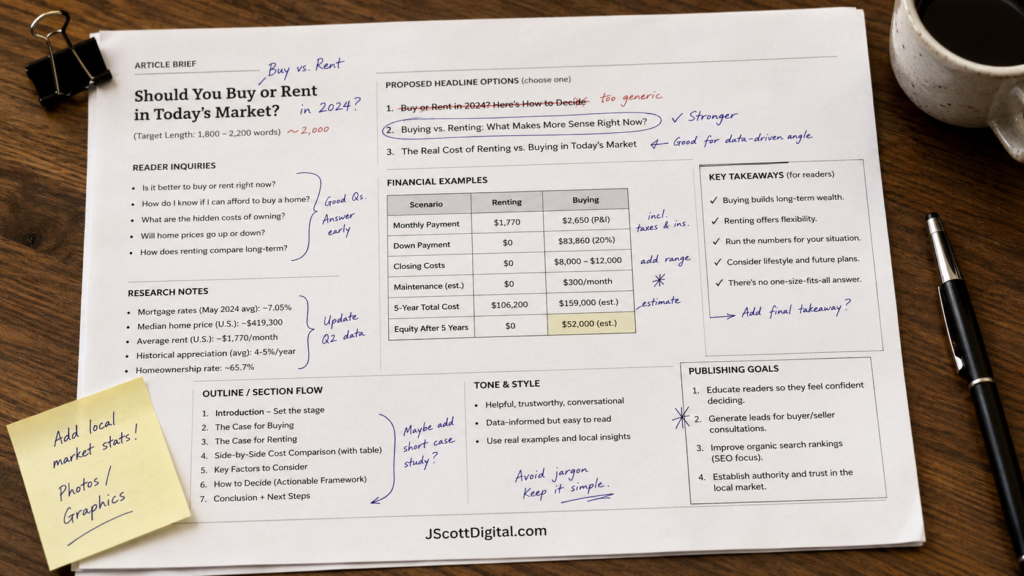 ARTICLE BRIEF
Buy vs. Rent
Should You Buy or Rent
in Today's Market?
in 2024?
(Target Length: 1,800 – 2,200 words)
~ 2,000
READER INQUIRIES
• Is it better to buy or rent right now?
• How do I know if I can afford to buy a home?
• What are the hidden costs of owning?
• Will home prices go up or down?
• How does renting compare long-term?
Good Qs.
Answer
early
RESEARCH NOTES
• Mortgage rates (May 2024 avg): ~7.05%
• Median home price (U.S.): ~$419,300
• Average rent (U.S.): ~$1,770/month
• Historical appreciation (avg): 4-5%/year
• Homeownership rate: ~65.7%
Update
Q2 data
PROPOSED HEADLINE OPTIONS (choose one)
1. Buy or Rent in 2024? Here's How to Decide
too generic
2. Buying vs. Renting: What Makes More Sense Right Now?
✓ Stronger
3. The Real Cost of Renting vs. Buying in Today's Market
Good for data-driven angle
FINANCIAL EXAMPLES
Scenario Renting Buying
Monthly Payment $1,770 $2,650 (P&I)
Down Payment $0 $83,860 (20%)
Closing Costs $0 $8,000 – $12,000
Maintenance (est.) $0 $300/month
5-Year Total Cost $106,200 $159,000 (est.)
Equity After 5 Years $0 $52,000 (est.)
incl.
taxes & ins.
add range
*
estimate
KEY TAKEAWAYS (for readers)
✓ Buying builds long-term wealth.
✓ Renting offers flexibility.
✓ Run the numbers for your situation.
✓ Consider lifestyle and future plans.
✓ There's no one-size-fits-all answer.
Add final takeaway?
Add local
market stats!
Photos /
Graphics
OUTLINE / SECTION FLOW
1. Introduction – Set the stage
2. The Case for Buying
3. The Case for Renting
4. Side-by-Side Cost Comparison (with table)
5. Key Factors to Consider
6. How to Decide (Actionable Framework)
7. Conclusion + Next Steps
Maybe add
short case
study?
TONE & STYLE
• Helpful, trustworthy, conversational
• Data-informed but easy to read
• Use real examples and local insights
Avoid jargon
Keep it simple.
PUBLISHING GOALS
1. Educate readers so they feel confident
deciding.
*
2. Generate leads for buyer/seller
consultations.
3. Improve organic search rankings
(SEO focus).
4. Establish authority and trust in the
local market.
JScottDigital.com